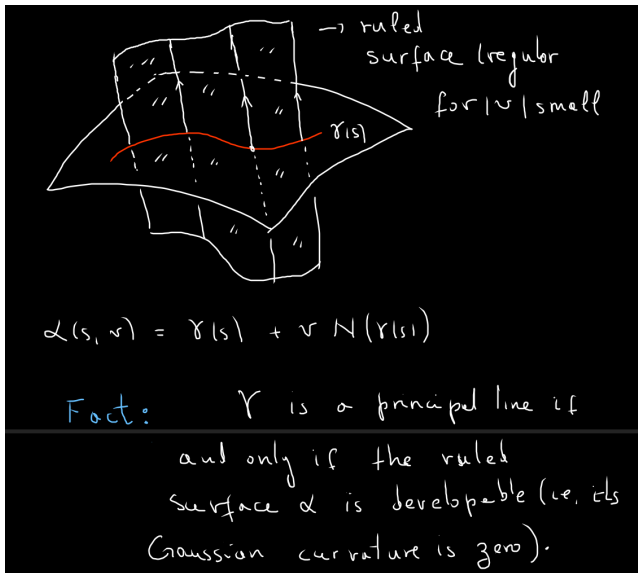 → ruled
surface (regular
for |v| small
γ(s)
α(s, v) = γ(s) + v N(γ(s))
Fact: γ is a principal line if
and only if the ruled
surface α is developable (i.e, its
Gaussian curvature is zero).